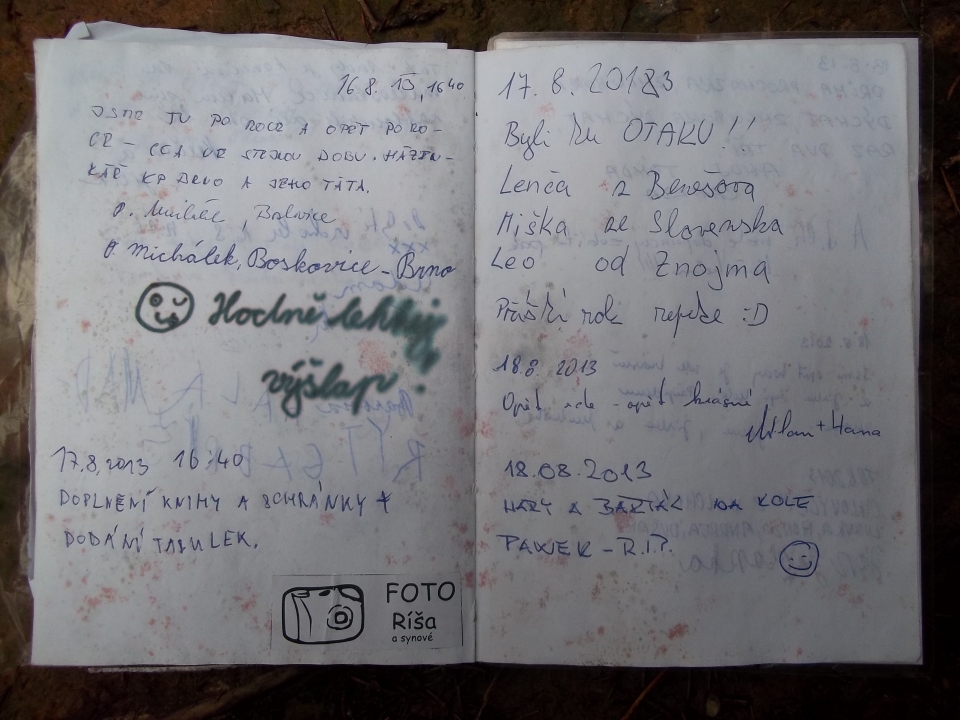 16.8.13, 16⁴⁰
JSME TU PO ROCE A OPĚT PO RO-
CE – CCA VE STEJNOU DOBU. HÁZEN-
KÁŘ KP BRNO A JEHO TÁTA.
P. Michálek, Boskovice – Brno
Hodně lehký
výšlap!
17.8.2013 16:40
DOPLNĚNÍ KNIHY A SCHRÁNKY +
DODÁNÍ TABULEK.
FOTO
Ríša
a synové
17.8.2013
Byli tu OTAKU!!
Lenča z Benešova
Miška ze Slovenska
Leo od Znojma
Příští rok repete :D
18.8.2013
Opět zde - opět krásné
Milan + Hana
18.08.2013
HARY A BARŤÁK NA KOLE
PAWEK – R.I.P.